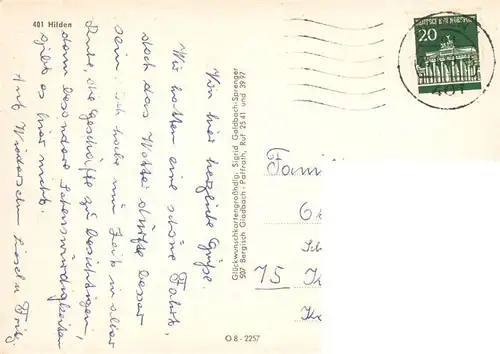 401 Hilden
Von hier herzliche Grüße.
Wir hatten eine schöne Fahrt,
doch das Wetter dürfte besser
sein. Ich habe nun Zeit in aller
Ruhe, die Geschäfte zu besichtigen,
denn besondere Sehenswürdigkeiten
gibt es hier nicht.
Auf Wiedersehn Liesel u. Fritz.
Glückwunschkartengroßhdlg. Sigrid Goldbach-Sprenger
507 Bergisch Gladbach - Paffrath, Ruf 25 41 und 39 97
O 8 - 2257
DEUTSCHE BUNDESPOST
20
401
Fam
75